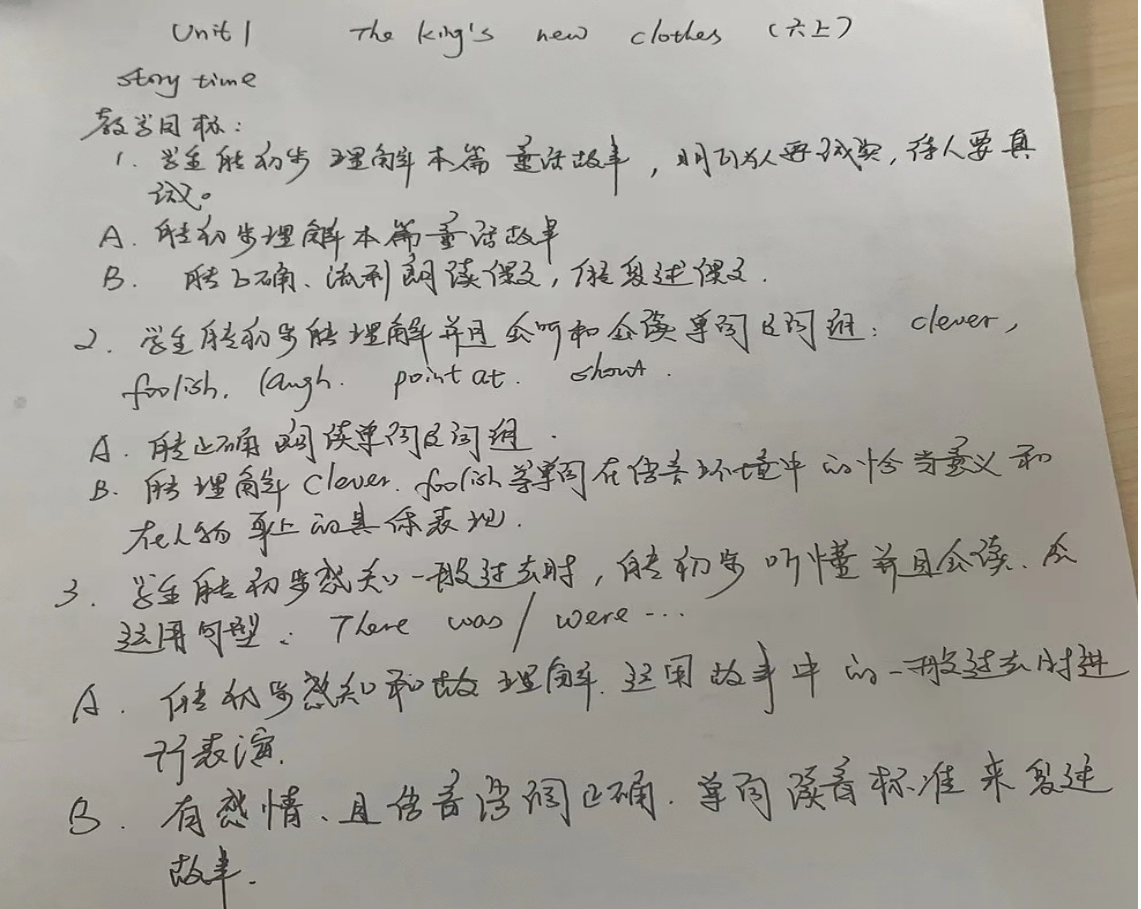 Unit 1 The king's new clothes (六上)
story time
教学目标:
1. 学生能初步理解本篇童话故事,明白为人要诚实,待人要真
A. 能初步理解本篇童话故事
B. 能正确、流利朗读课文,能复述课文.
2. 学生能初步能理解并且会听和会读单词及词组: clever,
foolish. laugh. point at. show.
A. 能正确朗读单词及词组.
B. 能理解clever. foolish等单词在语言环境中的恰当意义和
在人物身上的具体表现.
3. 学生能初步感知一般过去时,能初步听懂并且会读、会
运用句型: There was / were ...
A. 能初步感知和故理解.运用故事中的一般过去时进
行表演.
B. 有感情、且语音语调正确.单词读音标准来复述
故事.